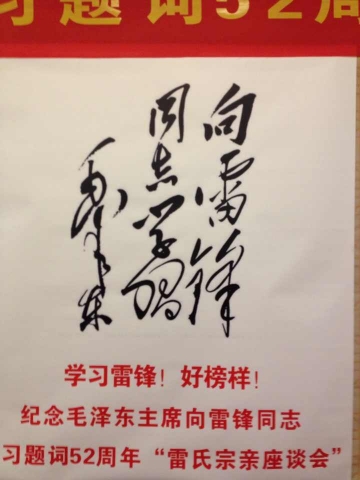 习题词52周
向雷锋
同志学习
毛泽东
学习雷锋！好榜样！
纪念毛泽东主席向雷锋同志
习题词52周年“雷氏宗亲座谈会”